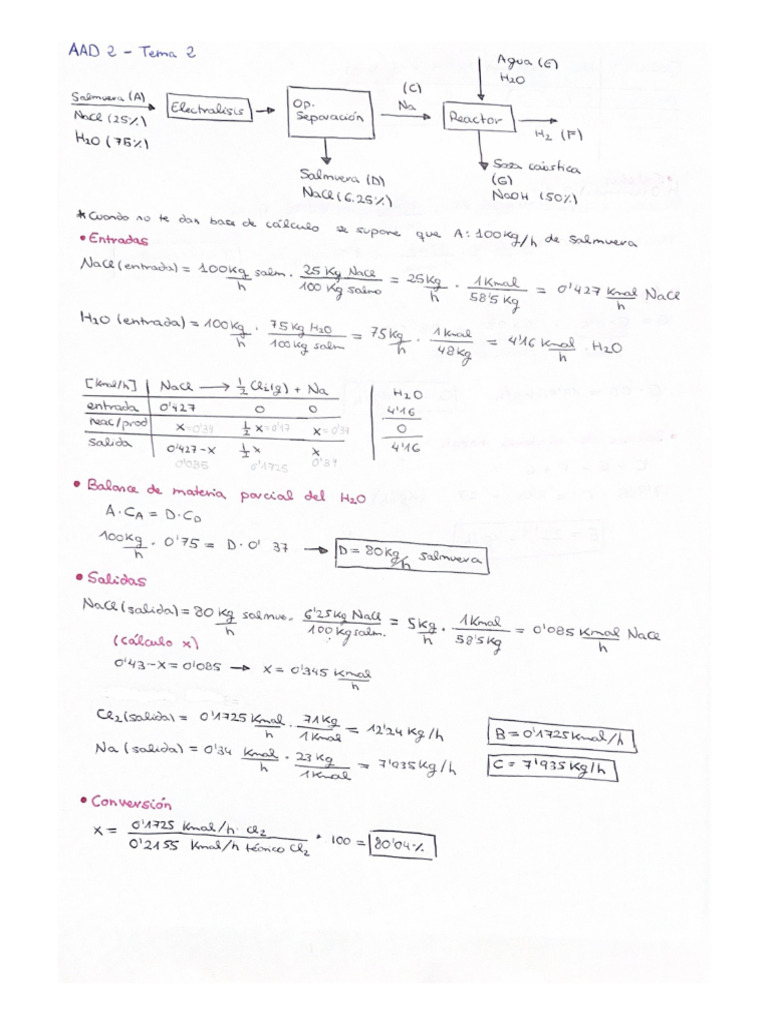 AAD 2 - Tema 2
Agua (E)
H2O
Salmuera (A)
NaCl (25%)
H2O (75%)
Electrolisis
Op. Separación
(C)
Na
Reactor
H2 (F)
Salmuera (D)
NaCl (6.25%)
Sosa cáustica
(G)
NaOH (50%)
* Cuando no te dan base de cálculo se supone que A: 100Kg/h de salmuera
• Entradas
NaCl (entrada) = 100Kg/h salm. · 25 Kg NaCl/100 Kg salmo = 25Kg/h · 1Kmol/58'5 Kg = 0'427 Kmol/h NaCl
H2O (entrada) = 100Kg/h · 75Kg H2O/100Kg salm = 75Kg/h · 1Kmol/48Kg = 4'16 Kmol/h · H2O
[Kmol/h] NaCl → 1/2 Cl2(g) + Na H2O
entrada 0'427 0 0 4'16
reac/prod x=0'34 1/2 x=0'17 x=0'34 0
salida 0'427-x 1/2 x x 4'16
0'085 0'1725 0'34
• Balance de materia parcial del H2O
A·CA = D·CD
100Kg/h · 0'75 = D·0'937 → D = 80Kg/h salmuera
• Salidas
NaCl (salida) = 80 Kg/h salmue. · 6'25Kg NaCl/100Kg salm. = 5Kg/h · 1Kmol/58'5Kg = 0'085 Kmol/h NaCl
(cálculo x)
0'43-x = 0'085 → x = 0'345 Kmol/h
Cl2 (salida) = 0'1725 Kmol/h · 71Kg/1Kmol = 12'24 Kg/h B = 0'1725Kmol/h
Na (salida) = 0'34 Kmol/h · 23 Kg/1Kmol = 7'935Kg/h C = 7'935Kg/h
• Conversión
x = 0'1725 Kmol/h· Cl2/0'2155 Kmol/h téorico Cl2 * 100 = 80'04%